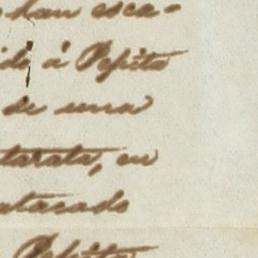 han esca-
ido á Pepita
de una
tarata, en
atacado
Pepita